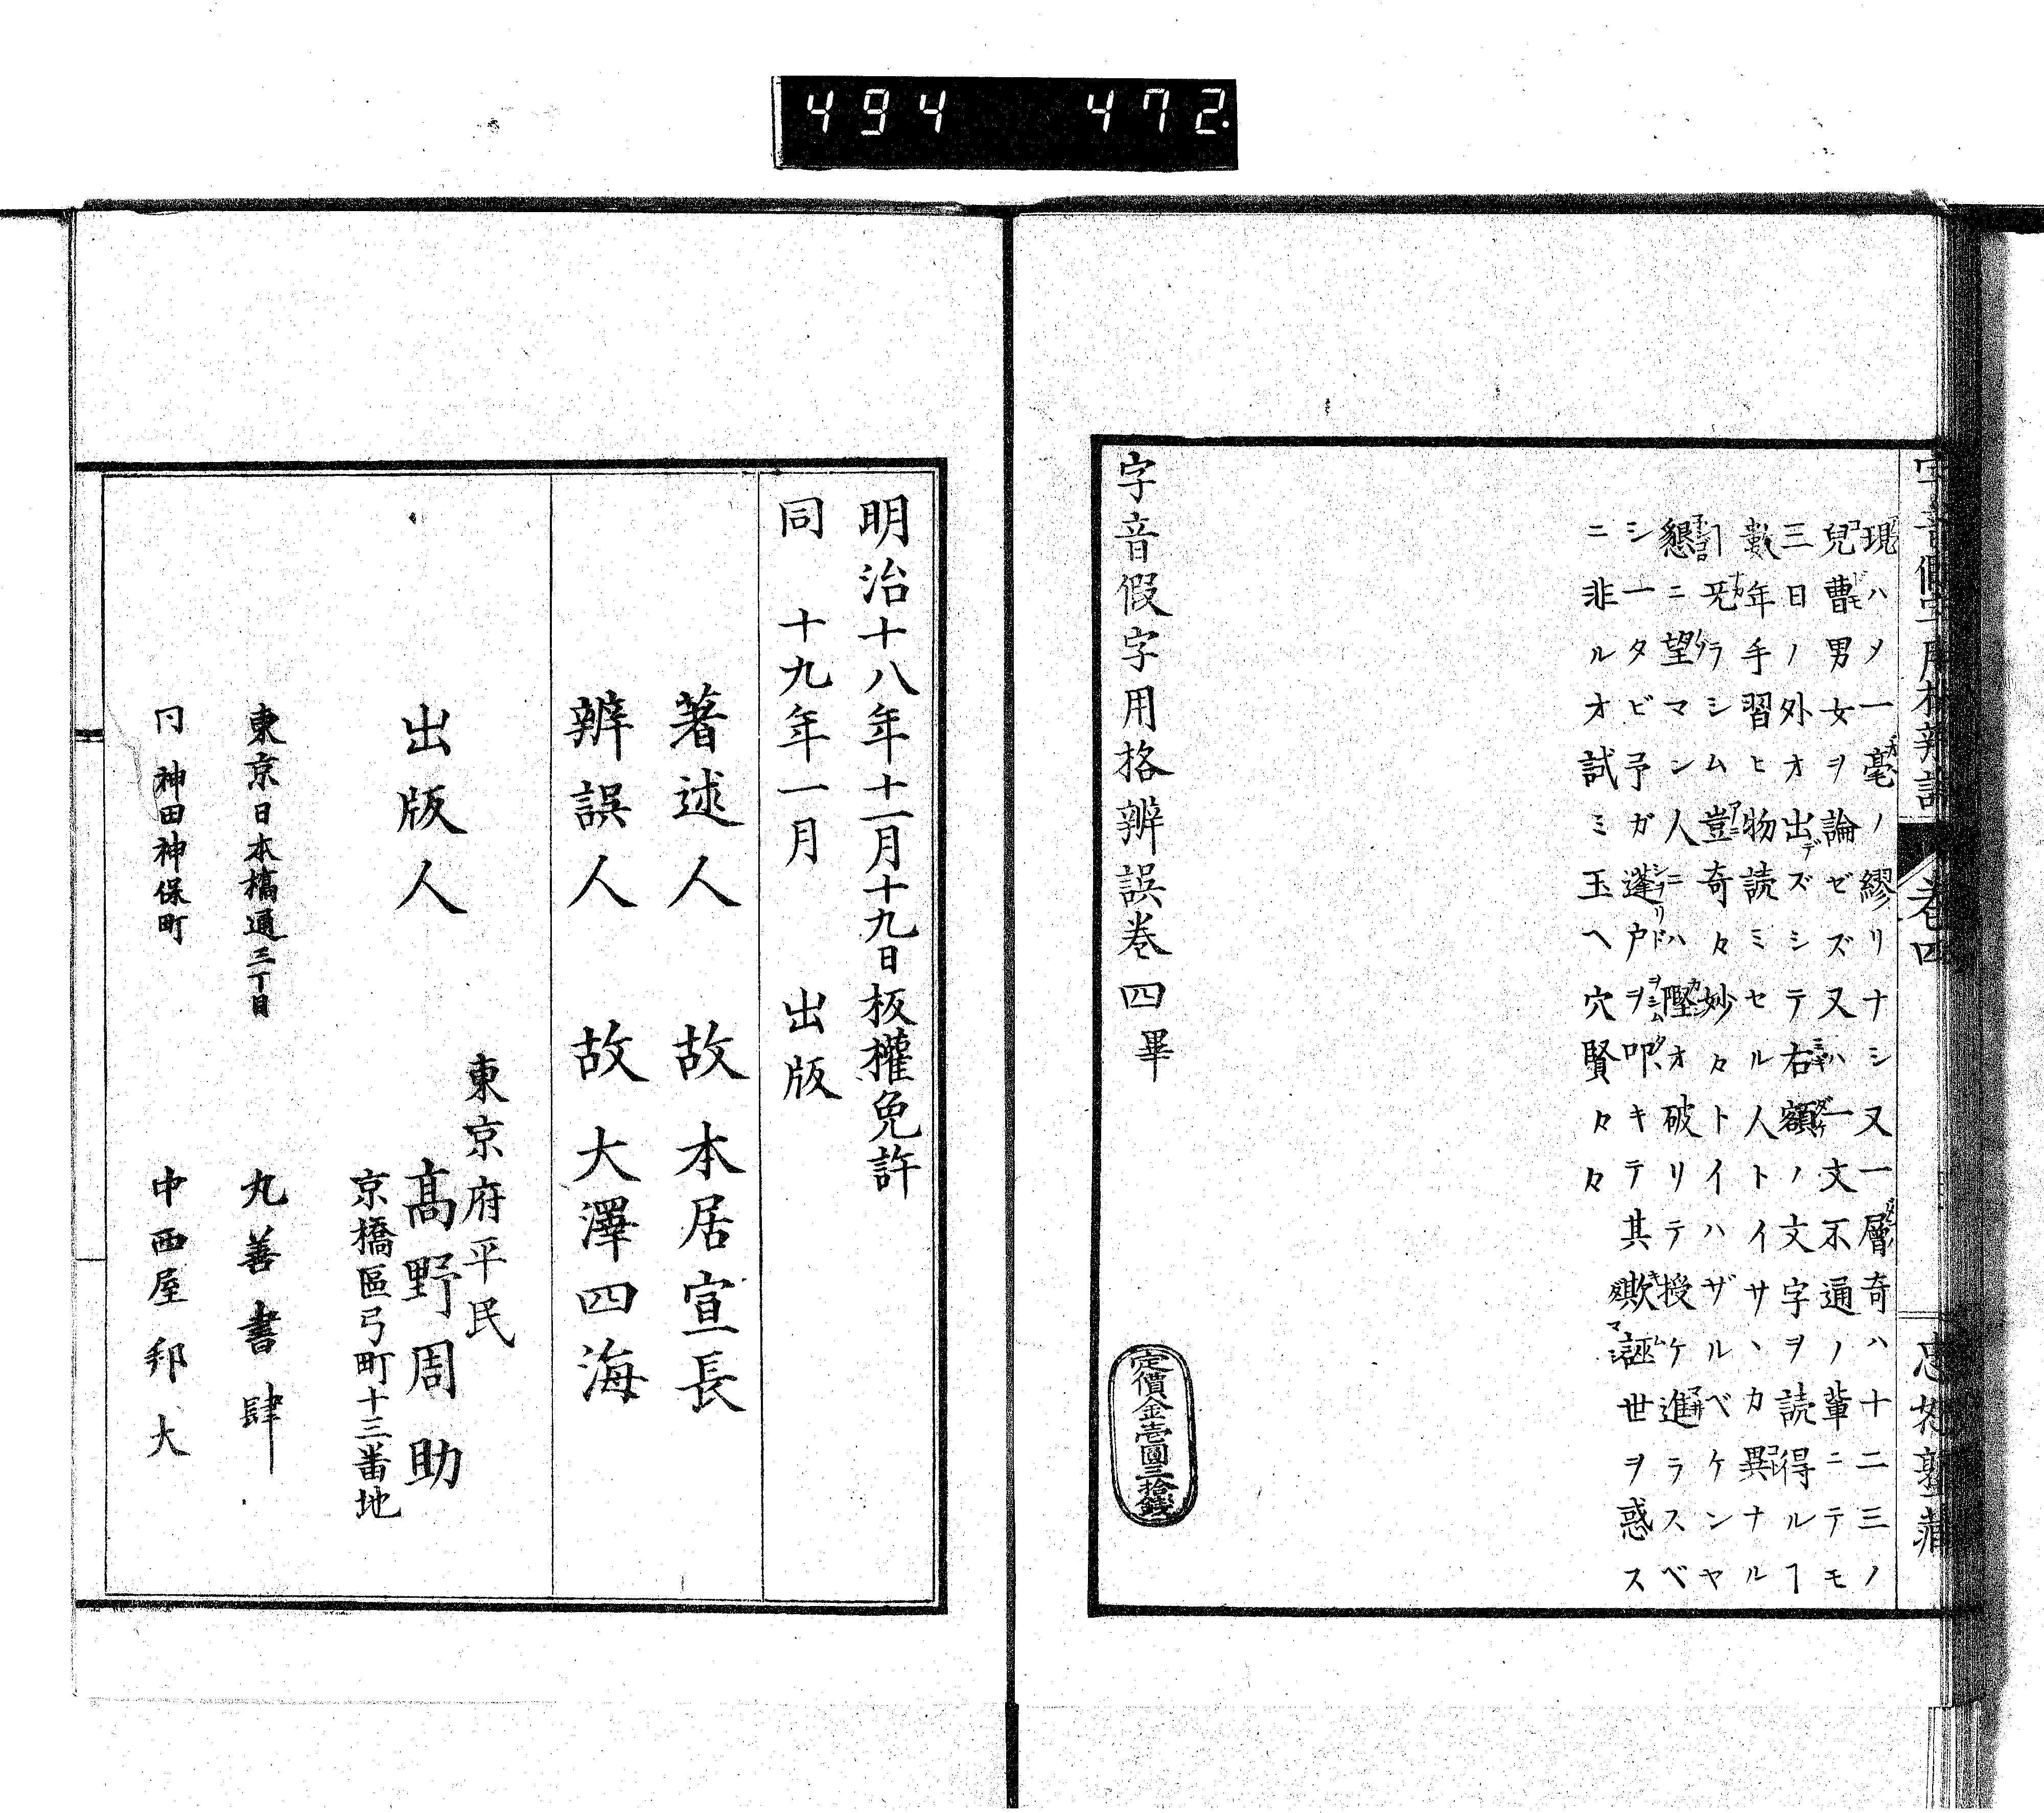 494 472.
字音假字用格辨誤 卷四 
現ハメ一毫ノ繆リナシ又一層奇ハ十二三ノ
兒曹男女ヲ論ゼズ又ハ一文不通ノ輩ニテモ
三日ノ外オ出ズシテ右額ノ文字ヲ読得ルヿ
數年手習ヒ物読ミセル人トイサヽカ異ナル
ヿ旡ラシム豈奇々妙々トイハザルベケンヤ
懇ニ望マン人ニハ慳オ破リテ授ケ進ラスベ
シ一タビ予ガ蓬戸ヲ叩キテ其欺誣世ヲ惑ス
ニ非ルオ試ミ玉ヘ穴賢々々
字音假字用格辨誤卷四畢
定價金壱圓三拾錢
明治十八年十一月十九日板權免許
同 十九年一月 出版
著述人 故 本居宣長
辨誤人 故 大澤四海
東京府平民
出版人 髙野周助
京橋區弓町十三番地
東京日本橋通三丁目 丸善書肆
仝 神田神保町 中西屋邦太